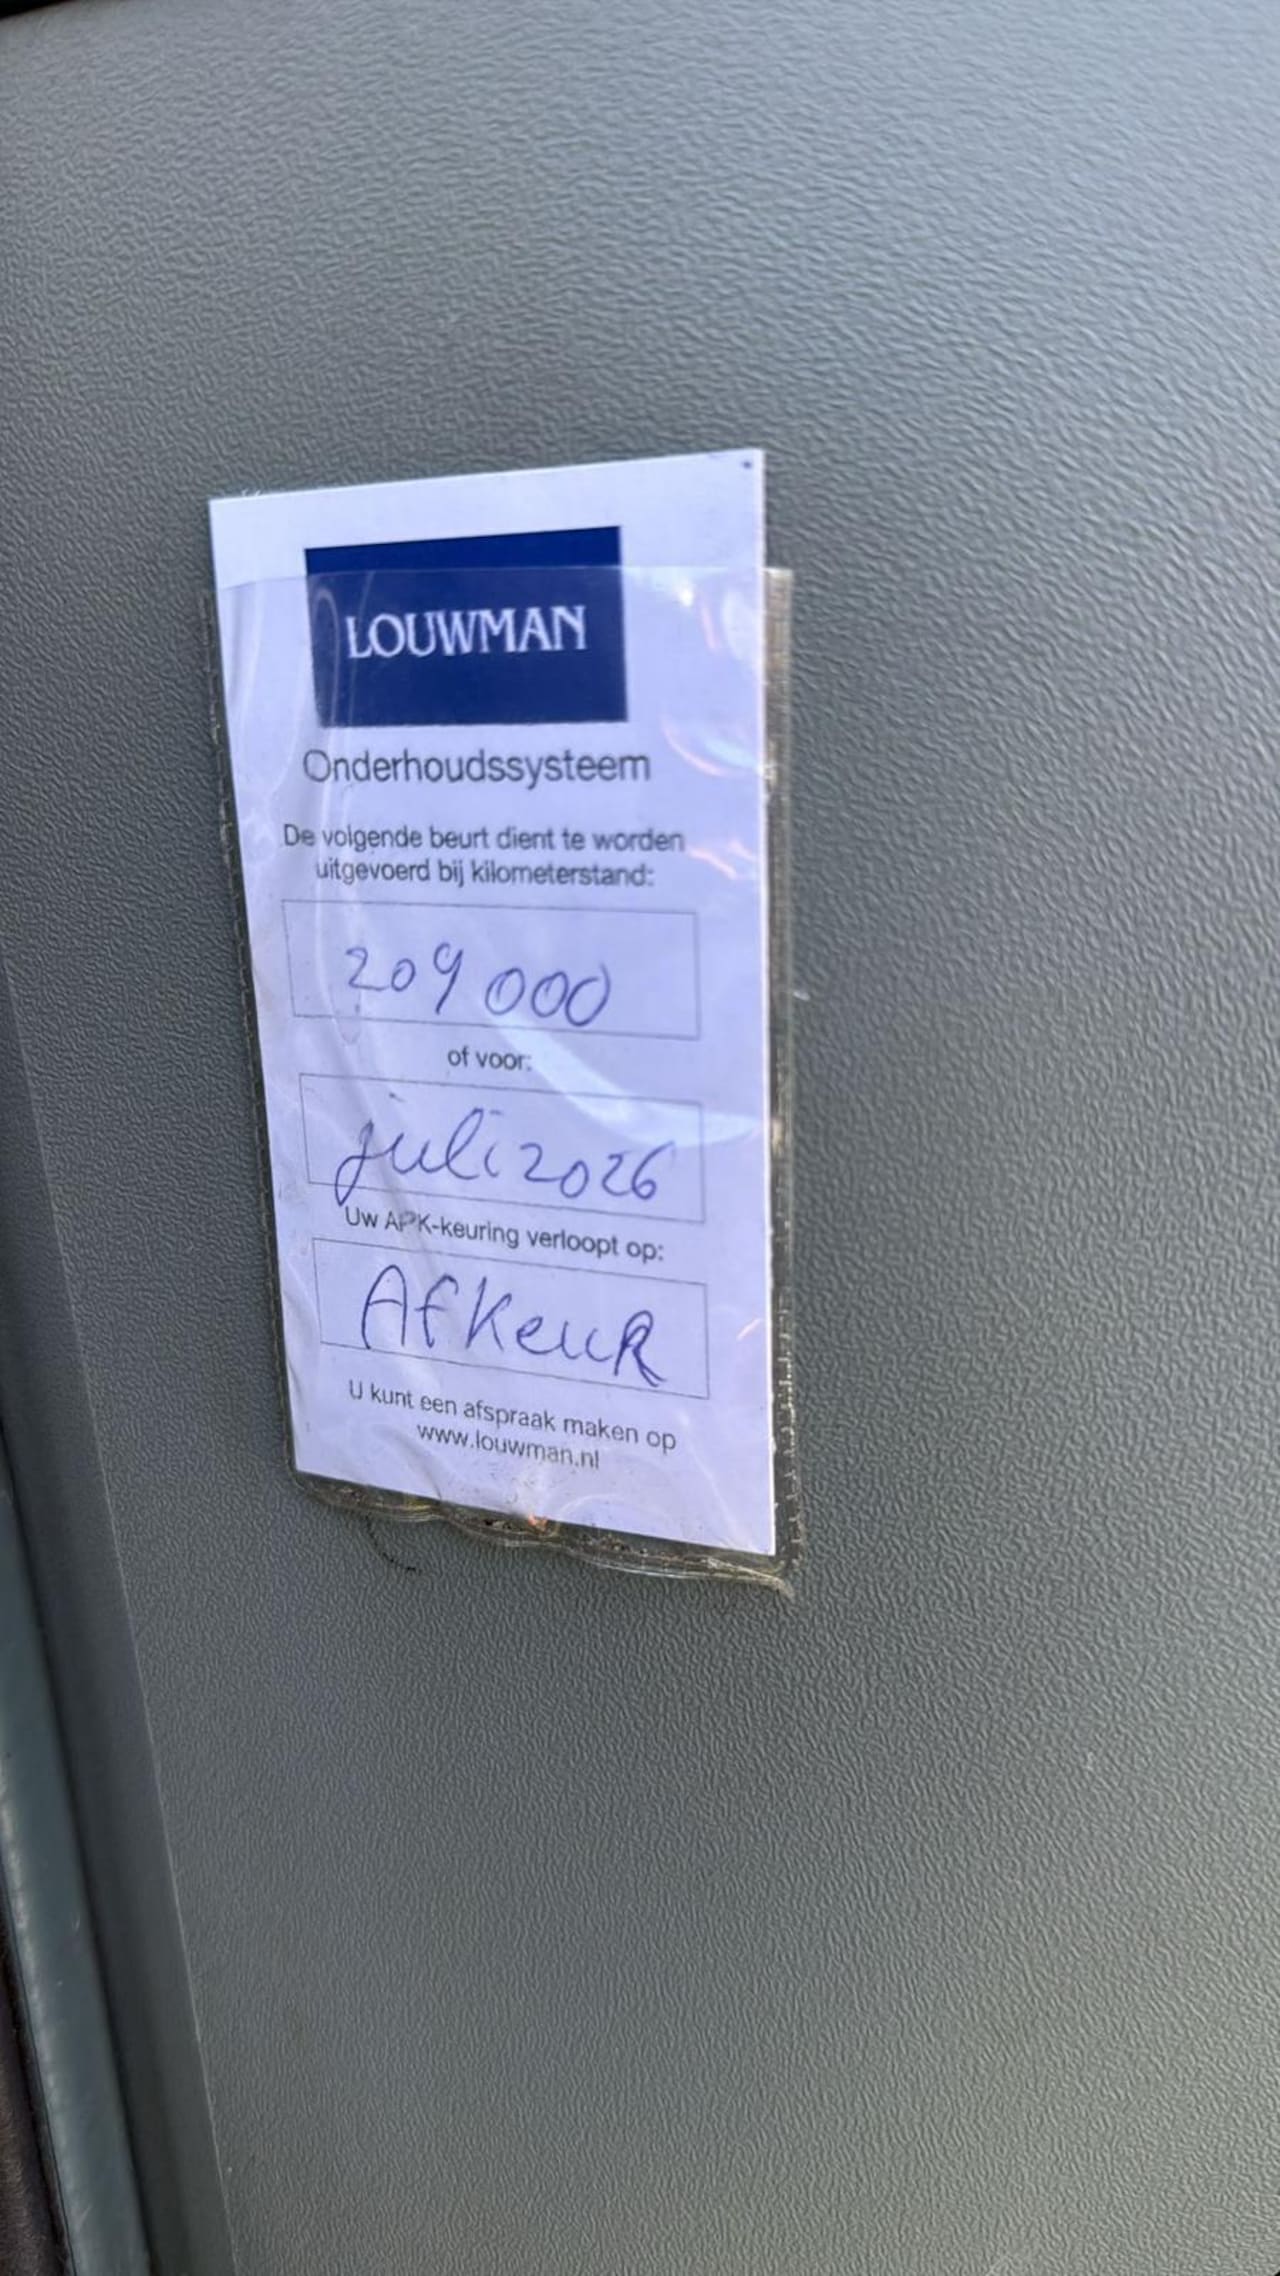 LOUWMAN
Onderhoudssysteem
De volgende beurt dient te worden
uitgevoerd bij kilometerstand:
209 000
of voor:
juli 2026
Uw APK-keuring verloopt op:
AfKeuR
U kunt een afspraak maken op
www.louwman.nl